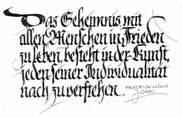 Das Geheimnis mit
allen Menschen in Frieden
zu leben, besteht in der Kunst,
jeden seiner Individualität
nach zu verstehen.
FRIEDRICH LUDWIG
JAHN